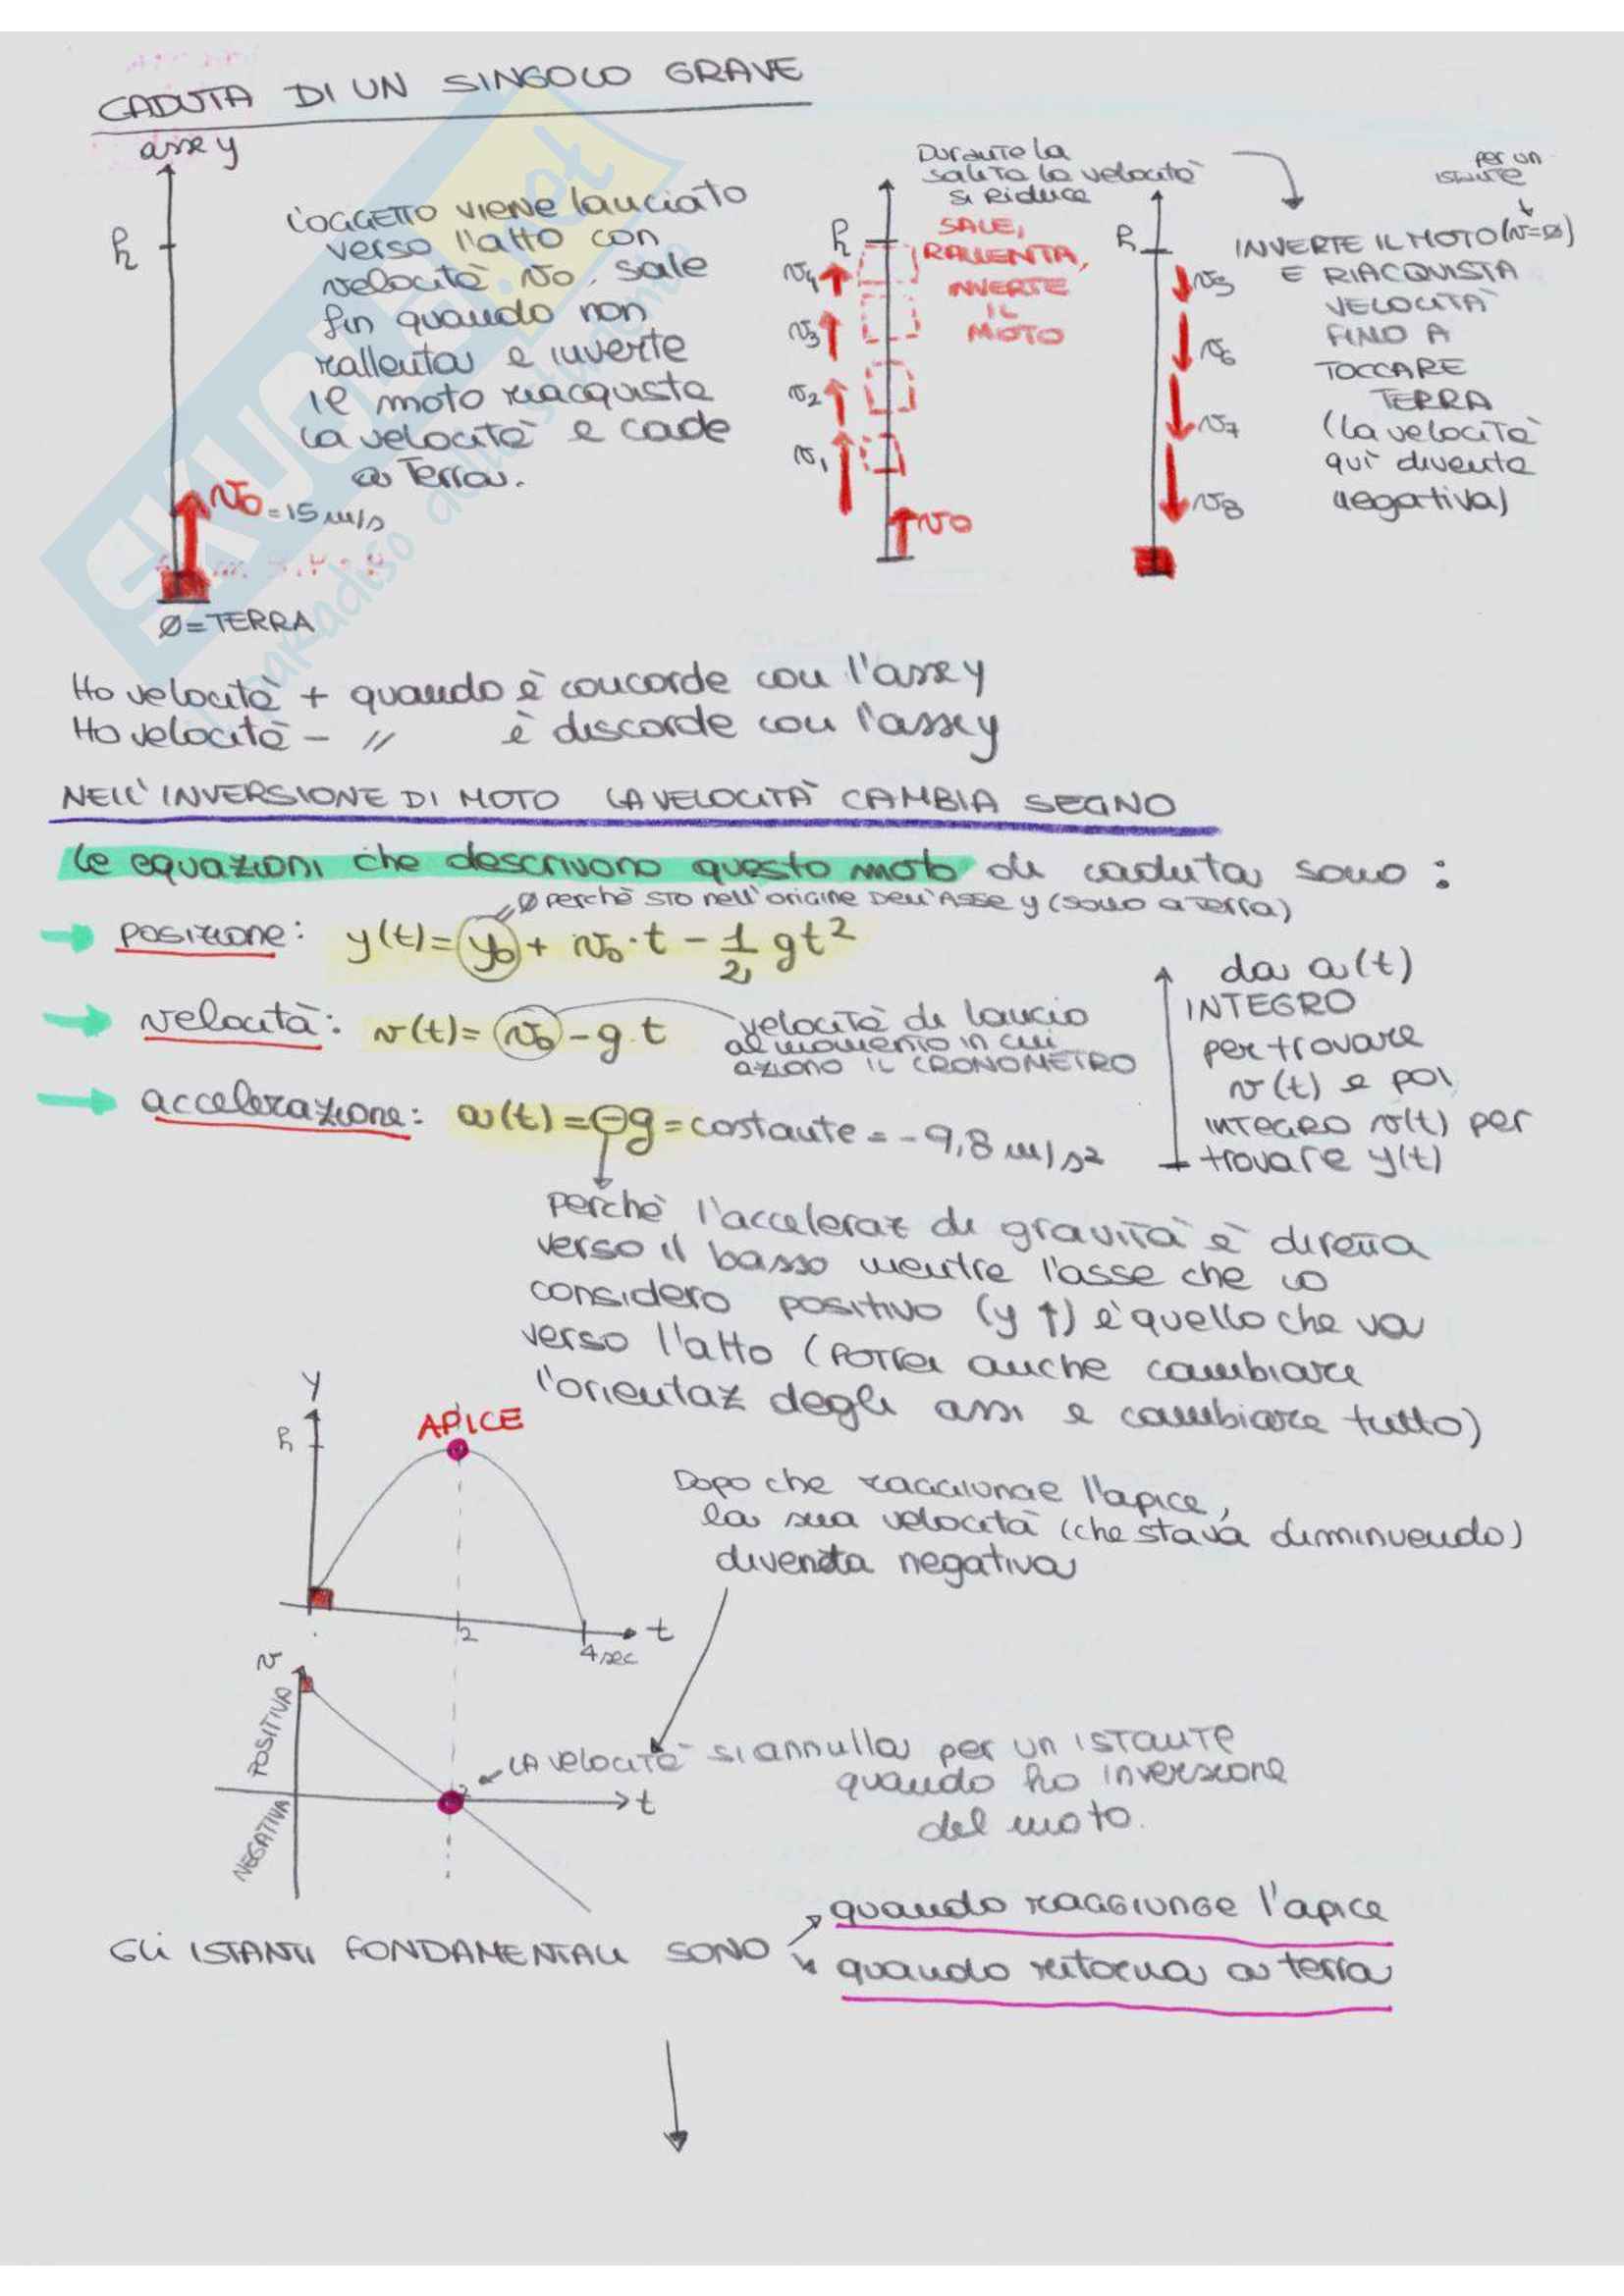 CADUTA DI UN SINGOLO GRAVE
asse y
h
L'OGGETTO VIENE lanciato
verso l'alto con
velocità v0, sale
fin quando non
rallenta e inverte
il moto riacquista
la velocità e cade
a Terra.
v0 = 15 m/s
Ø = TERRA
Durante la
salita la velocità
si Riduce
h
SALE,
RALLENTA,
INVERTE
IL
MOTO
v4
v3
v2
v1
v0
per un
istante
h
INVERTE IL MOTO (v=Ø)
E RIACQUISTA
VELOCITÀ
FINO A
TOCCARE
TERRA
(la velocità
qui diventa
negativa)
v5
v6
v7
v8
SKUOLA.net
il paradiso dello studente
Ho velocità + quando è concorde con l'asse y
Ho velocità - // è discorde con l'asse y
NELL'INVERSIONE DI MOTO LA VELOCITÀ CAMBIA SEGNO
Le equazioni che descrivono questo moto di caduta sono:
Ø perchè sto nell'origine dell'Asse y (sono a terra)
posizione: y(t) = y0 + v0·t - 1/2 gt²
velocità: v(t) = v0 - g t
velocità di lancio
al momento in cui
aziono IL CRONOMETRO
accelerazione: a(t) = -g = costante = -9,8 m/s²
da a(t)
INTEGRO
per trovare
v(t) e poi
INTEGRO v(t) per
trovare y(t)
perchè l'acceleraz di gravità è diretta
verso il basso mentre l'asse che io
considero positivo (y ↑) è quello che va
verso l'alto (potrei anche cambiare
l'orientaz degli assi e cambiare tutto)
y
h
APICE
2
4 sec
t
Dopo che raggiunge l'apice,
la sua velocità (che stava diminuendo)
diventa negativa
v
POSITIVA
NEGATIVA
t
LA velocità si annulla per un istante
quando ho inversione
del moto.
GLI ISTANTI FONDAMENTALI SONO
quando raggiunge l'apice
quando ritorna a terra